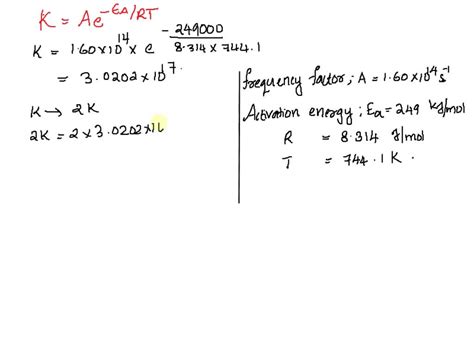 K = Ae^-Ea/RT
K = 1.60×10^14 × e^-249000/8.314 × 744.1
= 3.0202×10^17.
K → 2K
2K = 2 × 3.0202×10
frequency factor; A = 1.60×10^14 s^-1
Activation energy; Ea = 249 kJ/mol
R = 8.314 J/mol
T = 744.1 K.